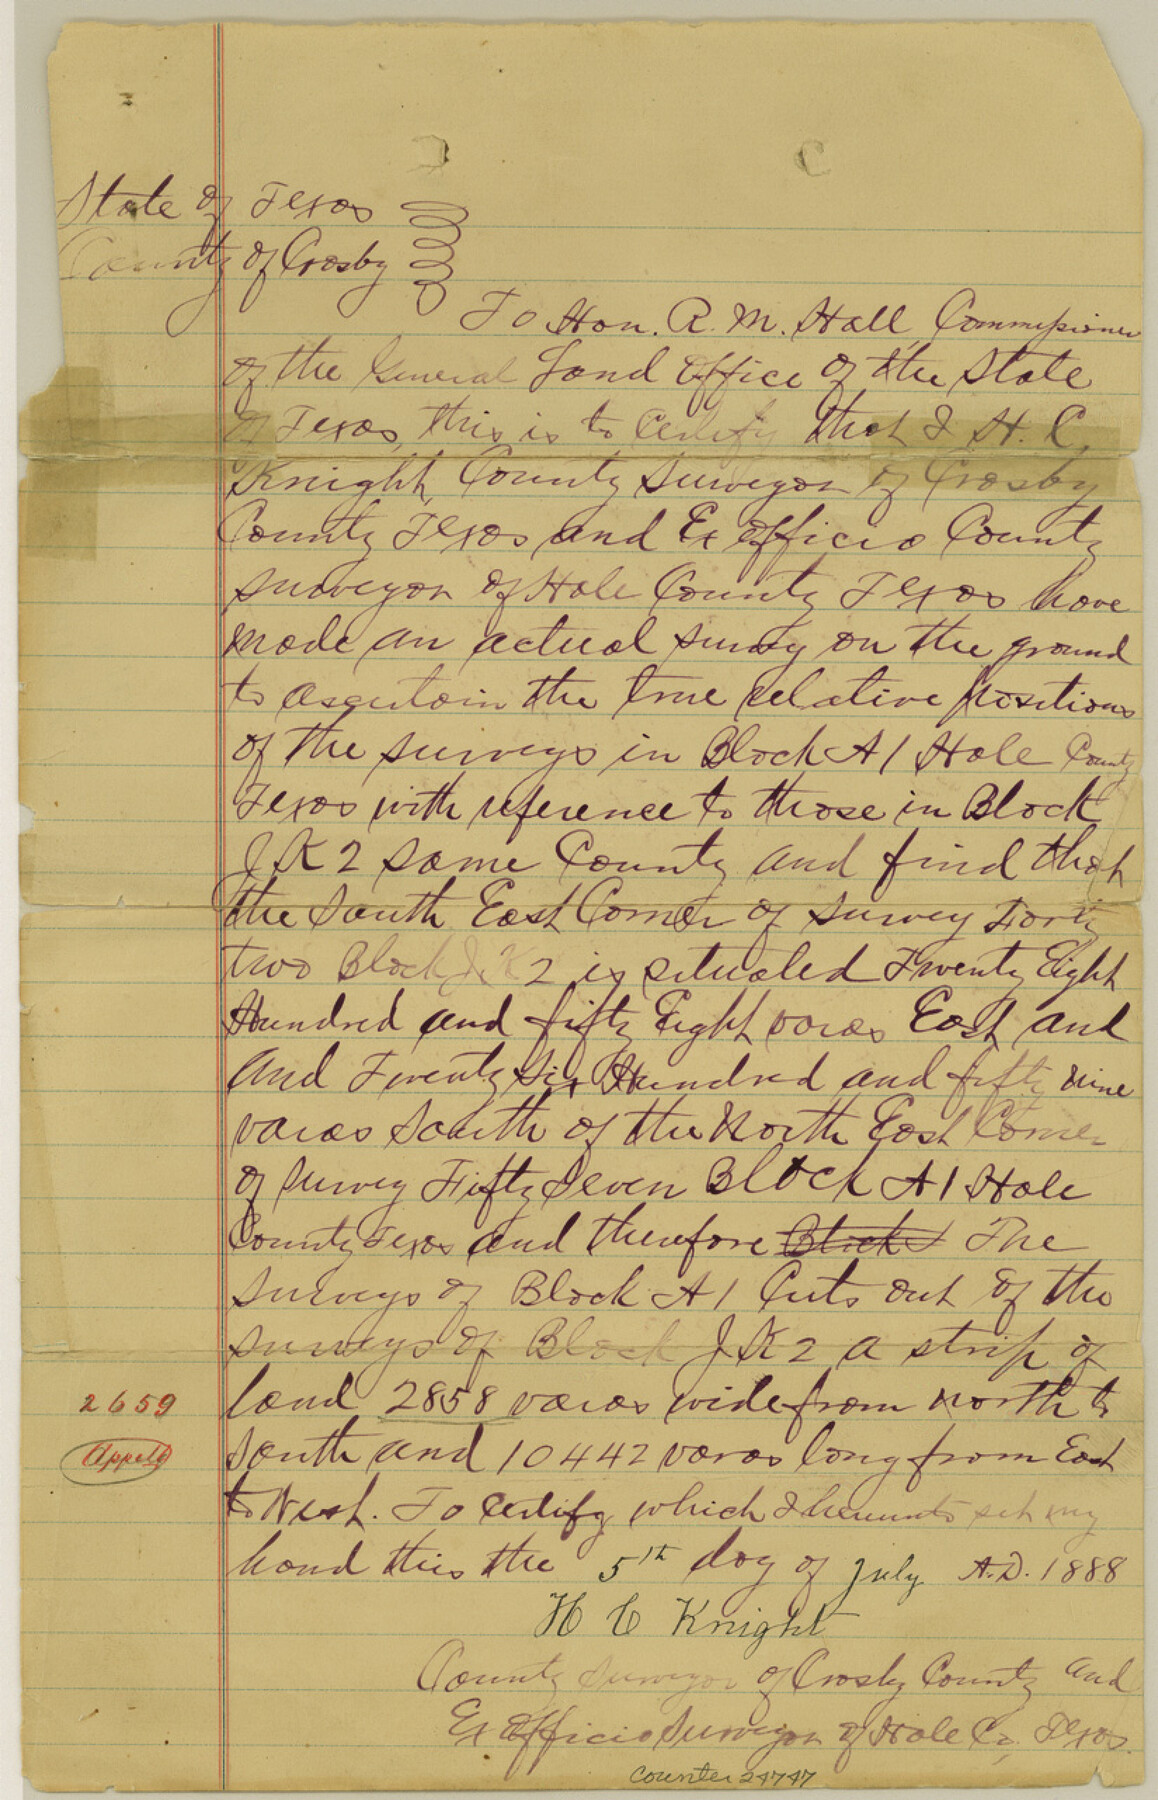 State of Texas
County of Crosby
To Hon. R. M. Hall, Commissioner
of the General Land Office of the State
of Texas, this is to Certify that I H. C.
Knight, County Surveyor of Crosby
County Texas and Ex Officio County
Surveyor of Hale County Texas have
made an actual survey on the ground
to ascertain the true relative positions
of the surveys in Block A1 Hale County
Texas with reference to those in Block
JK2 same County and find that
the South East Corner of survey Forty
two Block JK2 is situated Twenty Eight
Hundred and fifty Eight varas East and
and Twenty Six Hundred and fifty nine
varas South of the North East Corner
of survey Fifty Seven Block A1 Hale
County Texas and therefore Block A The
surveys of Block A1 Cuts out of the
surveys of Block JK2 a strip of
2659 land 2858 varas wide from North to
South and 10442 varas long from East
to West. To Certify which I hereunto set my
hand this the 5th day of July A.D. 1888
H C Knight
County Surveyor of Crosby County and
Ex Officio Surveyor of Hale Co, Texas.
counter 24747